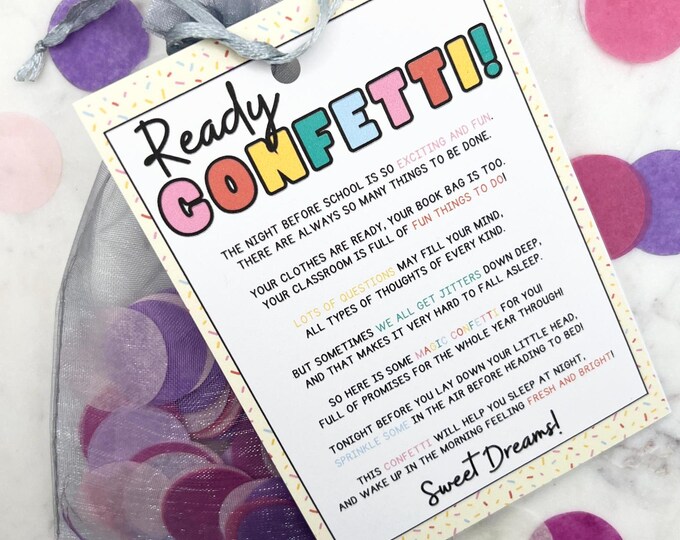 Ready
CONFETTI!
THE NIGHT BEFORE SCHOOL IS SO EXCITING AND FUN.
THERE ARE ALWAYS SO MANY THINGS TO BE DONE.
YOUR CLOTHES ARE READY, YOUR BOOK BAG IS TOO.
YOUR CLASSROOM IS FULL OF FUN THINGS TO DO!
LOTS OF QUESTIONS MAY FILL YOUR MIND,
ALL TYPES OF THOUGHTS OF EVERY KIND.
BUT SOMETIMES WE ALL GET JITTERS DOWN DEEP,
AND THAT MAKES IT VERY HARD TO FALL ASLEEP.
SO HERE IS SOME MAGIC CONFETTI FOR YOU!
FULL OF PROMISES FOR THE WHOLE YEAR THROUGH!
TONIGHT BEFORE YOU LAY DOWN YOUR LITTLE HEAD,
SPRINKLE SOME IN THE AIR BEFORE HEADING TO BED!
THIS CONFETTI WILL HELP YOU SLEEP AT NIGHT,
AND WAKE UP IN THE MORNING FEELING FRESH AND BRIGHT!
Sweet Dreams!